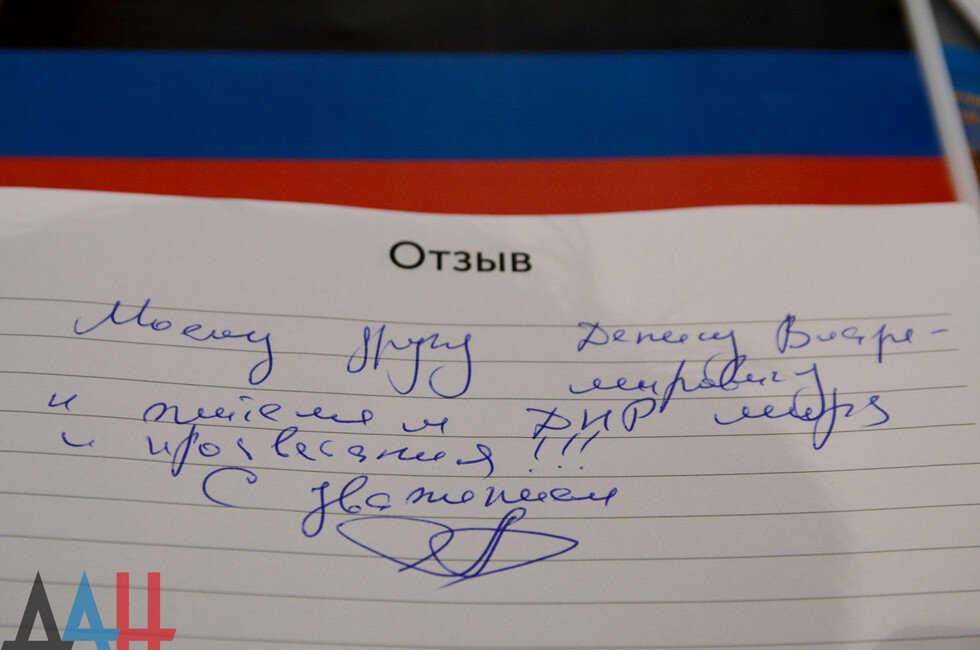 Отзыв
Моему другу Денису Влади-
мировичу
и жителям ДНР мира
и процветания!!!
С уважением
ДАН